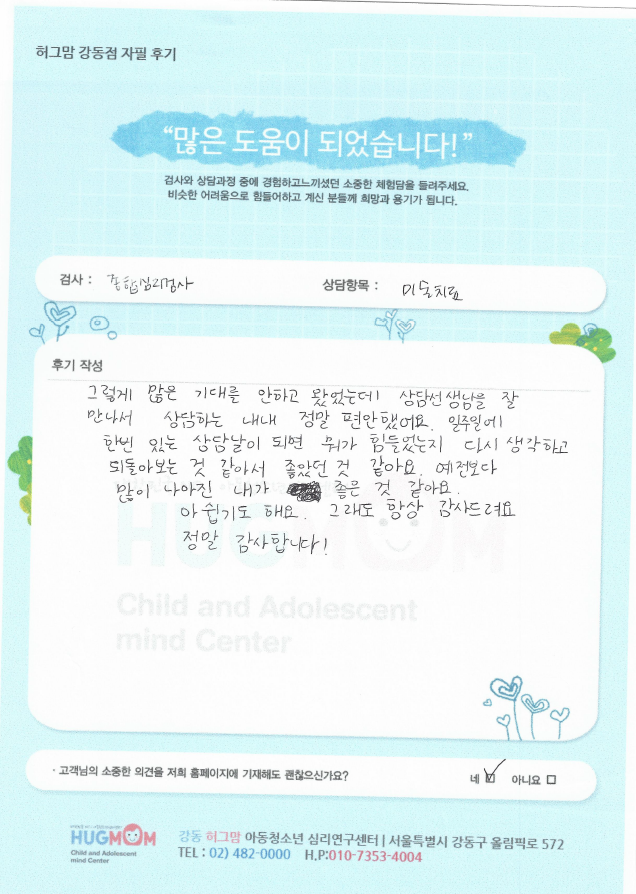 허그맘 강동점 자필 후기
“많은 도움이 되었습니다!”
검사와 상담과정 중에 경험하고느끼셨던 소중한 체험담을 들려주세요.
비슷한 어려움으로 힘들어하고 계신 분들께 희망과 용기가 됩니다.
검사 : 종합심리검사 상담항목 : 미술치료
후기 작성
그렇게 많은 기대를 안하고 왔었는데 상담선생님을 잘
만나서 상담하는 내내 정말 편안했어요. 일주일에
한번 있는 상담날이 되면 뭐가 힘들었는지 다시 생각하고
되돌아보는 것 같아서 좋았던 것 같아요. 예전보다
많이 나아진 내가 좋은 것 같아요.
아쉽기도 해요. 그래도 항상 감사드려요
정말 감사합니다!
HUGMOM
Child and Adolescent
mind Center
· 고객님의 소중한 의견을 저희 홈페이지에 기재해도 괜찮으신가요? 네 아니요
HUGMOM
Child and Adolescent
mind Center
강동 허그맘 아동청소년 심리연구센터 | 서울특별시 강동구 올림픽로 572
TEL : 02) 482-0000 H.P:010-7353-4004